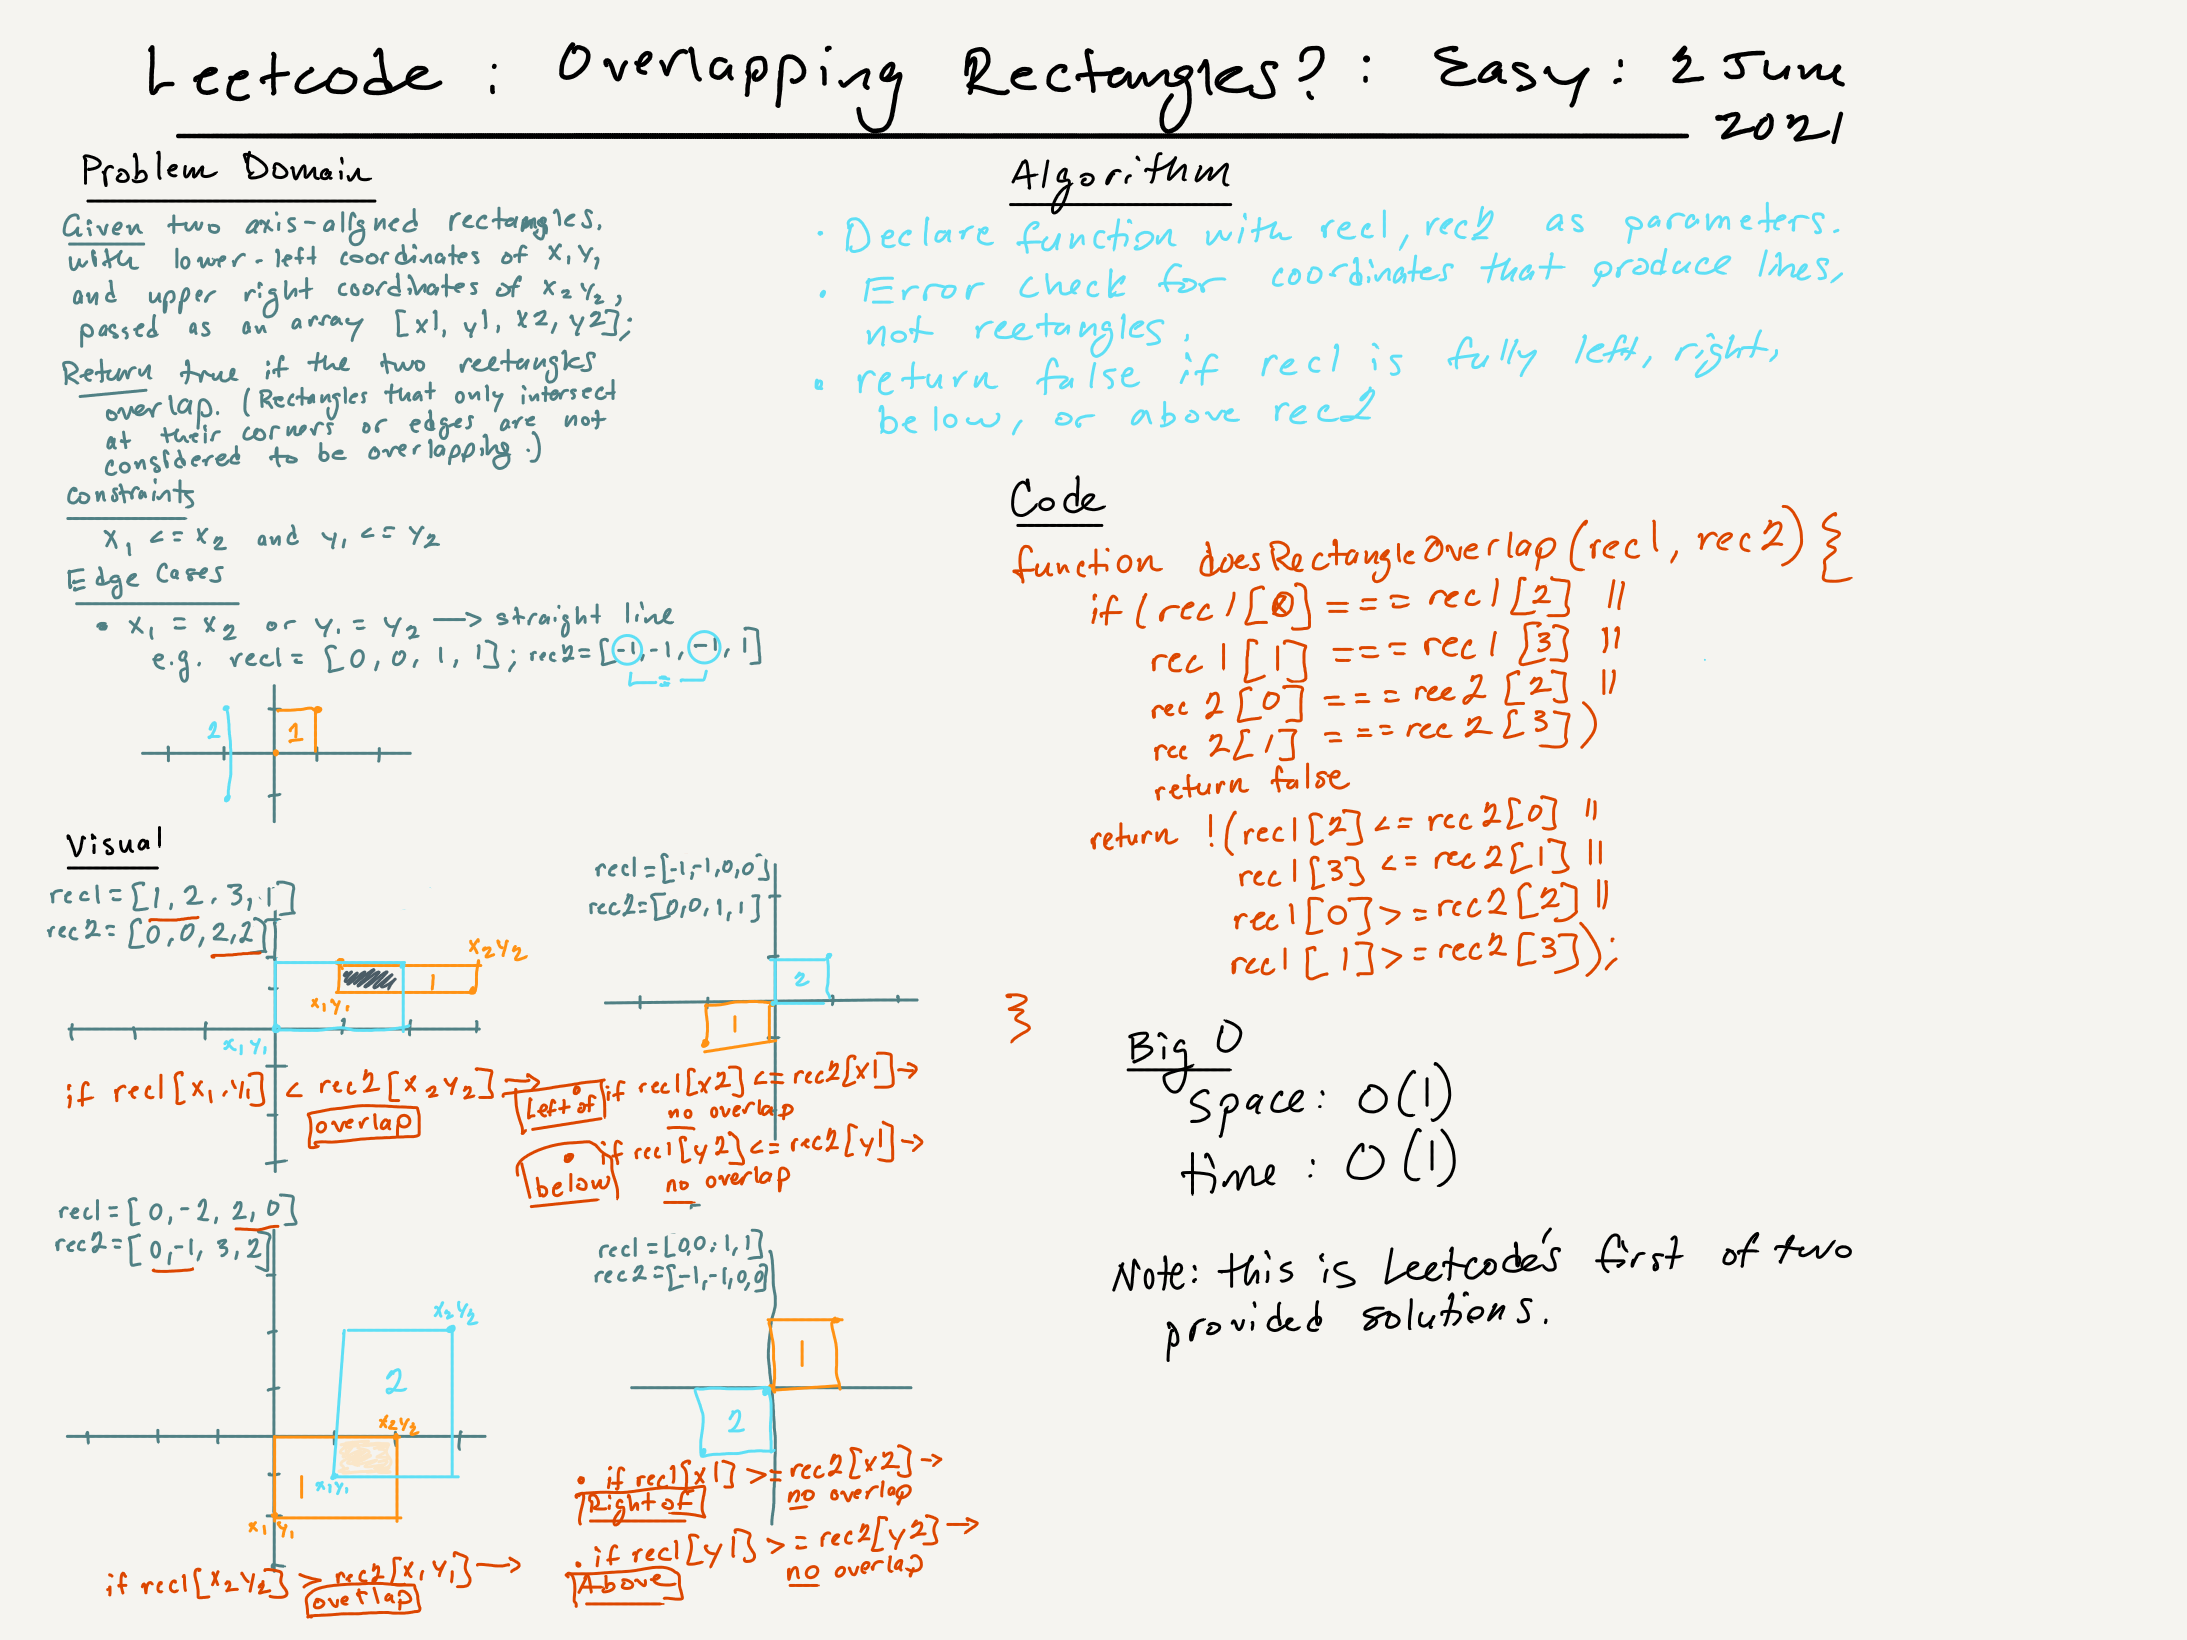 Leetcode : Overlapping Rectangles? : Easy : 2 June
2021
Problem Domain
Given two axis-aligned rectangles,
with lower-left coordinates of x1y1
and upper right coordinates of x2y2,
passed as an array [x1, y1, x2, y2];
Return true if the two rectangles
overlap. (Rectangles that only intersect
at their corners or edges are not
considered to be overlapping.)
Constraints
x1 <= x2 and y1 <= y2
Edge Cases
• x1 = x2 or y1 = y2 → straight line
e.g. rec1 = [0, 0, 1, 1]; rec2 = [-1, -1, -1, 1]
=
2
1
Visual
rec1 = [1, 2, 3, 1]
rec2 = [0, 0, 2, 2]
x2y2
1
x1y1
x1y1
if rec1[x1, y1] < rec2[x2y2] →
overlap
rec1 = [-1, -1, 0, 0]
rec2 = [0, 0, 1, 1]
2
1
• if rec1[x2] <= rec2[x1] →
Left of
no overlap
• if rec1[y2] <= rec2[y1] →
below
no overlap
rec1 = [0, -2, 2, 0]
rec2 = [0, -1, 3, 2]
x2y2
2
x2y2
1
x1y1
x1y1
if rec1[x2y2] > rec2[x1y1] →
overlap
rec1 = [0,0,1,1]
rec2 = [-1,-1,0,0]
1
2
• if rec1[x1] >= rec2[x2] →
Right of
no overlap
• if rec1[y1] >= rec2[y2] →
Above
no overlap
Algorithm
• Declare function with rec1, rec2 as parameters.
• Error check for coordinates that produce lines,
not rectangles.
• return false if rec1 is fully left, right,
below, or above rec2
Code
function doesRectangleOverlap(rec1, rec2) {
if (rec1[0] === rec1[2] ||
rec1[1] === rec1[3] ||
rec2[0] === rec2[2] ||
rec2[1] === rec2[3])
return false
return !(rec1[2] <= rec2[0] ||
rec1[3] <= rec2[1] ||
rec1[0] >= rec2[2] ||
rec1[1] >= rec2[3]);
}
Big O
Space: O(1)
time: O(1)
Note: this is Leetcode's first of two
provided solutions.